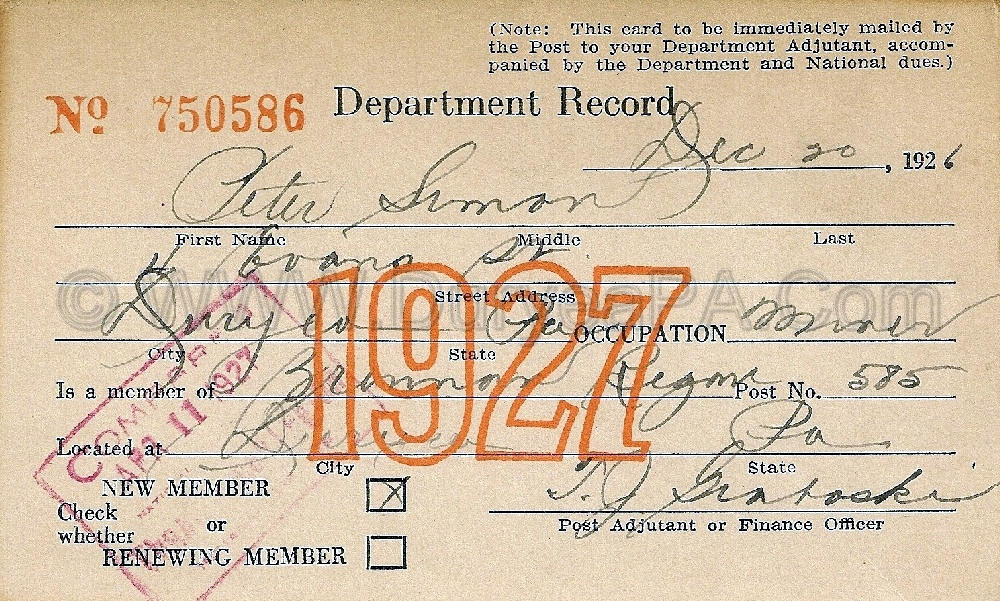 (Note: This card to be immediately mailed by
the Post to your Department Adjutant, accom-
panied by the Department and National dues.)
Nº 750586 Department Record
Dec 20, 1926
Peter Simon
First Name Middle Last
Evans St
©WWW.DuryeaPA.Com
1927
Street Address
Duryea Pa OCCUPATION Miner
City State
Is a member of Brennan Post No. 585
Located at Duryea Pa
City State
NEW MEMBER X
Check
whether or
RENEWING MEMBER
T. J. Graboski
Post Adjutant or Finance Officer
11 1927